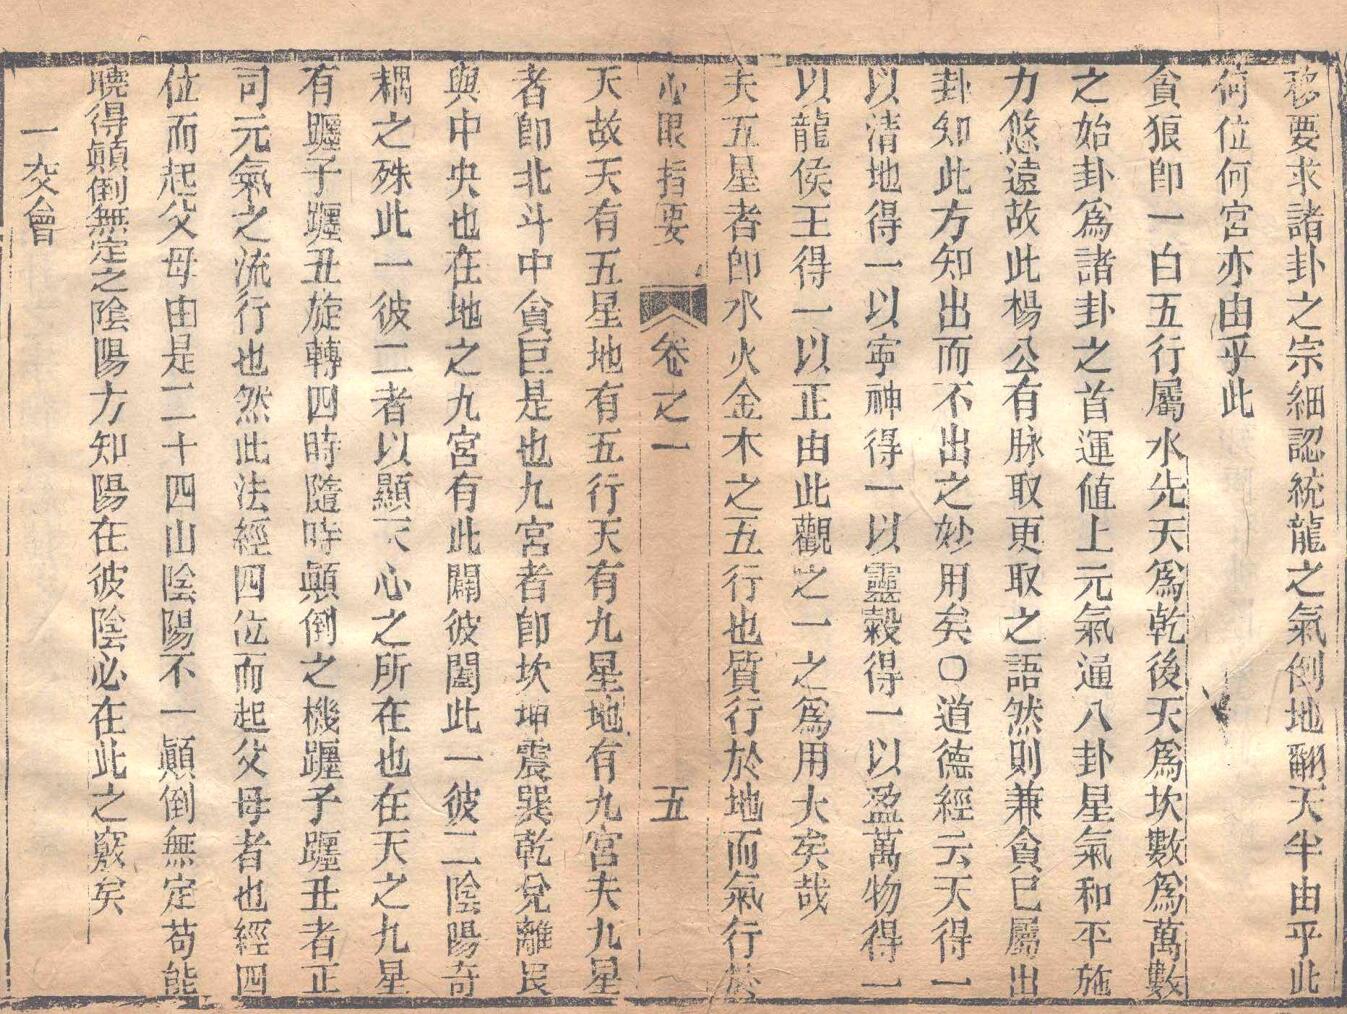 移要求諸卦之宗細認統龍之氣倒地翻天半由乎此
何位何宮亦由乎此
貪狼卽一白五行屬水先天爲乾後天爲坎數爲萬數
之始卦爲諸卦之首運値上元氣通八卦星氣和平施
力悠遠故此楊公有脉取更取之語然則兼貪已屬出
卦知此方知出而不出之妙用矣〇道德經云天得一
以清地得一以寧神得一以靈穀得一以盈萬物得一
以龍侯王得一以正由此觀之一之爲用大矣哉
夫五星者卽水火金木之五行也質行於地而氣行於
心眼指要 卷之一 五
天故天有五星地有五行天有九星地有九宮夫九星
者卽北斗中貪巨是也九宮者卽坎坤震巽乾兌離艮
與中央也在地之九宮有此闢彼闔此一彼二陰陽奇
耦之殊此一彼二者以顯天心之所在也在天之九星
有躔子躔丑旋轉四時隨時顚倒之機躔子躔丑者正
司元氣之流行也然此法經四位而起父母者也經四
位而起父母由是二十四山陰陽不一顚倒無定苟能
曉得顚倒無定之陰陽方知陽在彼陰必在此之竅矣
一交會